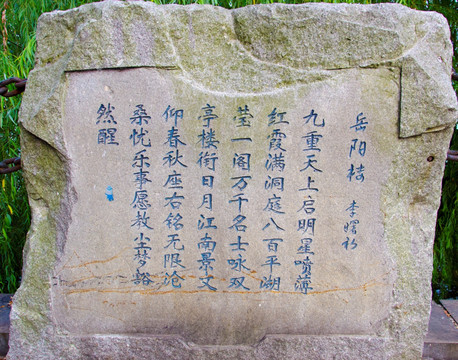 岳阳楼 李曙初
九重天上启明星喷薄
红霞满洞庭八百平湖
莹一阁万千名士咏双
亭楼衔日月江南景文
仰春秋座右铭无限沧
桑忧乐事愿教尘梦豁
然醒